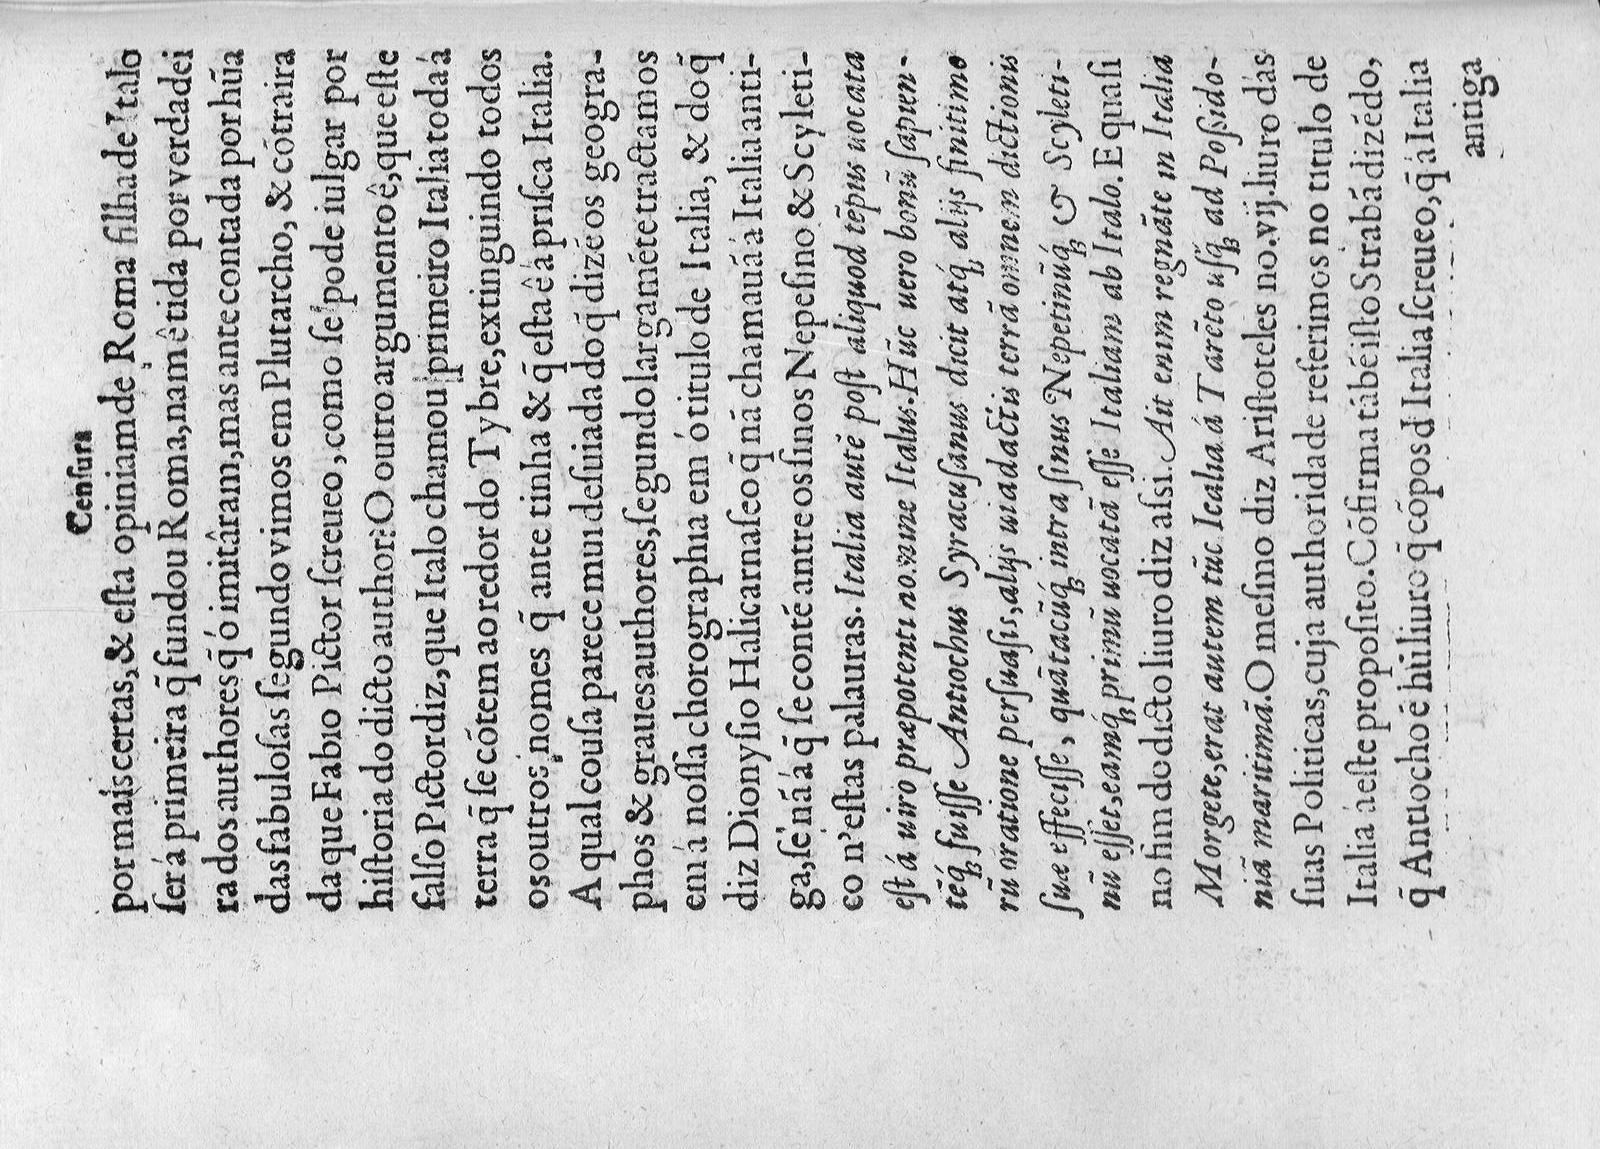 Cenſura
por mais certas, & eſta opiniam de Roma filha de Italo
ſer á primeira q̃ fundou Roma, nam ê tida por verdadei
ra dos authores q̃ ó imitâram, mas ante contada por hũa
das fabuloſas ſegundo vimos em Plutarcho, & cótraira
da que Fabio Pictor ſcreueo, como ſe pode iulgar por
hiſtoria do dicto author? O outro argumento ê, que eſte
falſo Pictor diz, que Italo chamou primeiro Italia toda á
terra q̃ ſe cótem ao redor do Tybre, extinguindo todos
os outros nomes q̃ ante tinha & q̃ eſta ê á priſca Italia.
A qual couſa parece mui deſuiada do q̃ dizé os geogra-
phos & graues authores, ſegundo largaméte tractamos
em á noſſa chorographia em ó titulo de Italia, & do q̃
diz Dionyſio Halicarnaſeo q̃ ná chamauá á Italia anti-
ga, ſé ná á q̃ ſe conté antre os ſinos Nepeſino & Scyleti-
co n'eſtas palauras. Italia autẽ poſt aliquod tẽpus uocata
eſt á uiro præpotenti nomine Italus. Hũc uero bonũ ſapien-
tẽq́ꝫ fuiſſe Antiochus Syracuſanus dicit atq́ꝫ alijs finitimo
rũ oratione perſuaſis, alijs ui adactis terrã omnem dictionis
ſuæ effeciſſe, quãtacũq́ꝫ intra ſinus Nepetinũq́ꝫ & Scyleti-
nũ eſſet, eamq́ꝫ primũ uocatã eſſe Italiam ab Italo. E quaſi
no fim do dicto liuro diz aſsi. Ait enim regnãte in Italia
Morgete, erat autem tũc Icalia á Tarẽto uſq̃ꝫ ad Poßido-
niã maritimã. O meſmo diz Ariſtoteles no. vij. liuro dás
ſuas Politicas, cuja authoridade referimos no titulo de
Italia á eſte propoſito. Cófirma tábé iſto Strabá dizédo,
q̃ Antiocho é hũ liuro q̃ cópos d Italia ſcreueo, q̃ á Italia
antiga